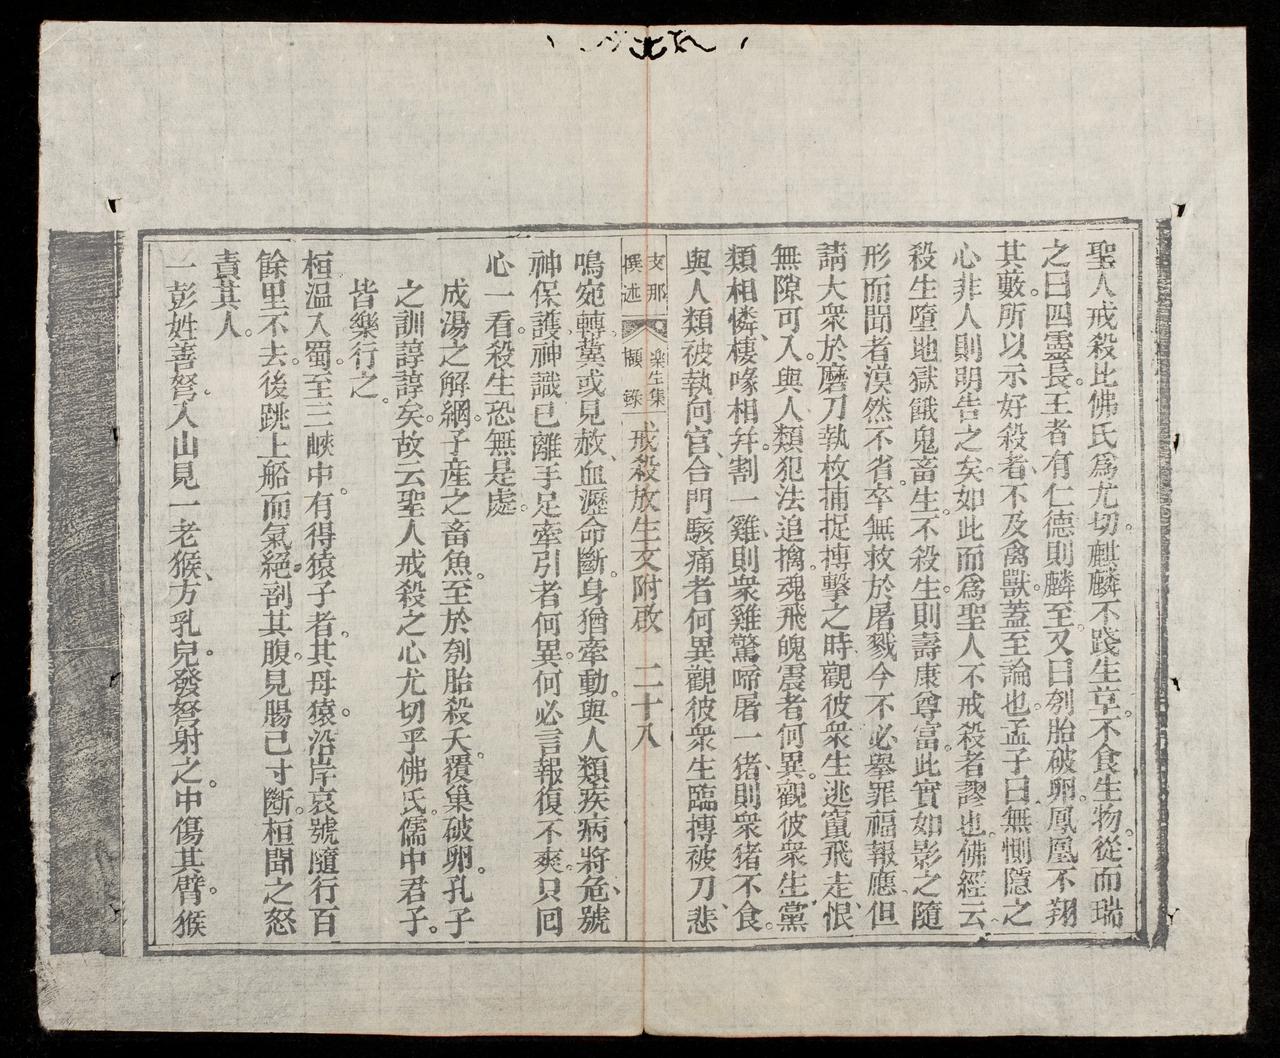 聖人戒殺比佛氏爲尤切。麒麟不踐生草。不食生物。從而瑞
之曰四靈長。王者有仁德則麟至。又曰刳胎破卵。鳳凰不翔
其藪。所以示好殺者不及禽獸。蓋至論也。孟子曰無惻隱之
心非人。則明告之矣。如此而爲聖人不戒殺者謬也。佛經云
殺生墮地獄餓鬼畜生。不殺生。則壽康尊富。此實如影之隨
形而聞者漠然不省。卒無救於屠戮今不必舉罪福報應、但
請大衆於磨刀執杖捕捉摶擊之時觀彼衆生逃竄飛走、恨
無隙可入。與人類犯法追擒。魂飛魄震者何異。觀彼衆生黨
類相憐、棲喙相弁。割一雞、則衆雞驚啼屠一猪、則衆猪不食。
與人類被執向官、合門駭痛者何異觀彼衆生臨摶被刀、悲
支那撰述 樂生集擷錄 戒殺放生文附啟 二十八
鳴宛轉、冀或見赦、血瀝命斷。身猶牽動。與人類疾病將危、號
神保護、神識已離手足牽引者何異。何必言報復不爽。只回
心一看。殺生恐無是處。
成湯之解網。子產之畜魚。至於刳胎殺夭。覆巢破卵。孔子
之訓諄諄矣。故云聖人戒殺之心尤切乎佛氏。儒中君子。
皆樂行之。
桓溫入蜀。至三峽中。有得猿子者。其母猿。沿岸哀號隨行百
餘里不去。後跳上船而氣絕。剖其腹。見腸已寸斷。桓聞之怒
責其人。
一彭姓善弩。入山見一老猴、方乳兒。發弩射之。中傷其臂。猴